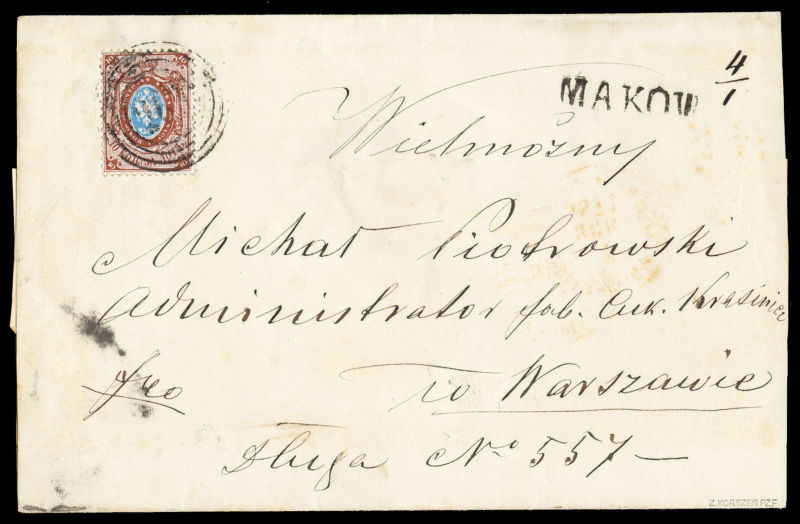 MAKOW
4/1
Wielmożny
Michał Piotrowski
Administrator fab. Cuk. Krasiniec
fco w Warszawie
Długa No 557 —
Z. KORSZEŃ PZF